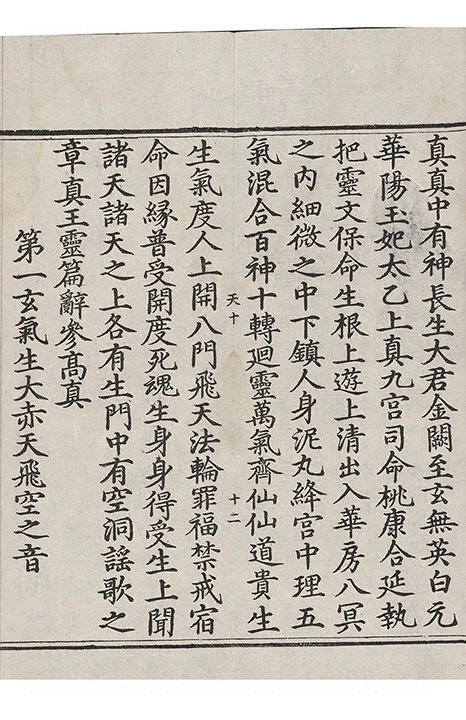 真真中有神長生大君金闕至玄無英白元
華陽玉妃太乙上真九宮司命桃康合延執
把靈文保命生根上遊上清出入華房八冥
之内細微之中下鎮人身泥丸絳宮中理五
氣混合百神十轉廻靈萬氣齊仙仙道貴生
天十
十二
生氣度人上開八門飛天法輪罪福禁戒宿
命因縁普受開度死魂生身身得受生上聞
諸天諸天之上各有生門中有空洞謡歌之
章真王靈篇辭參髙真
第一玄氣生大赤天飛空之音